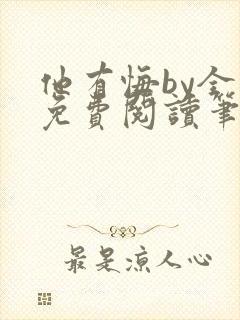 他有悔by金
免費閱讀筆
最是涼人心